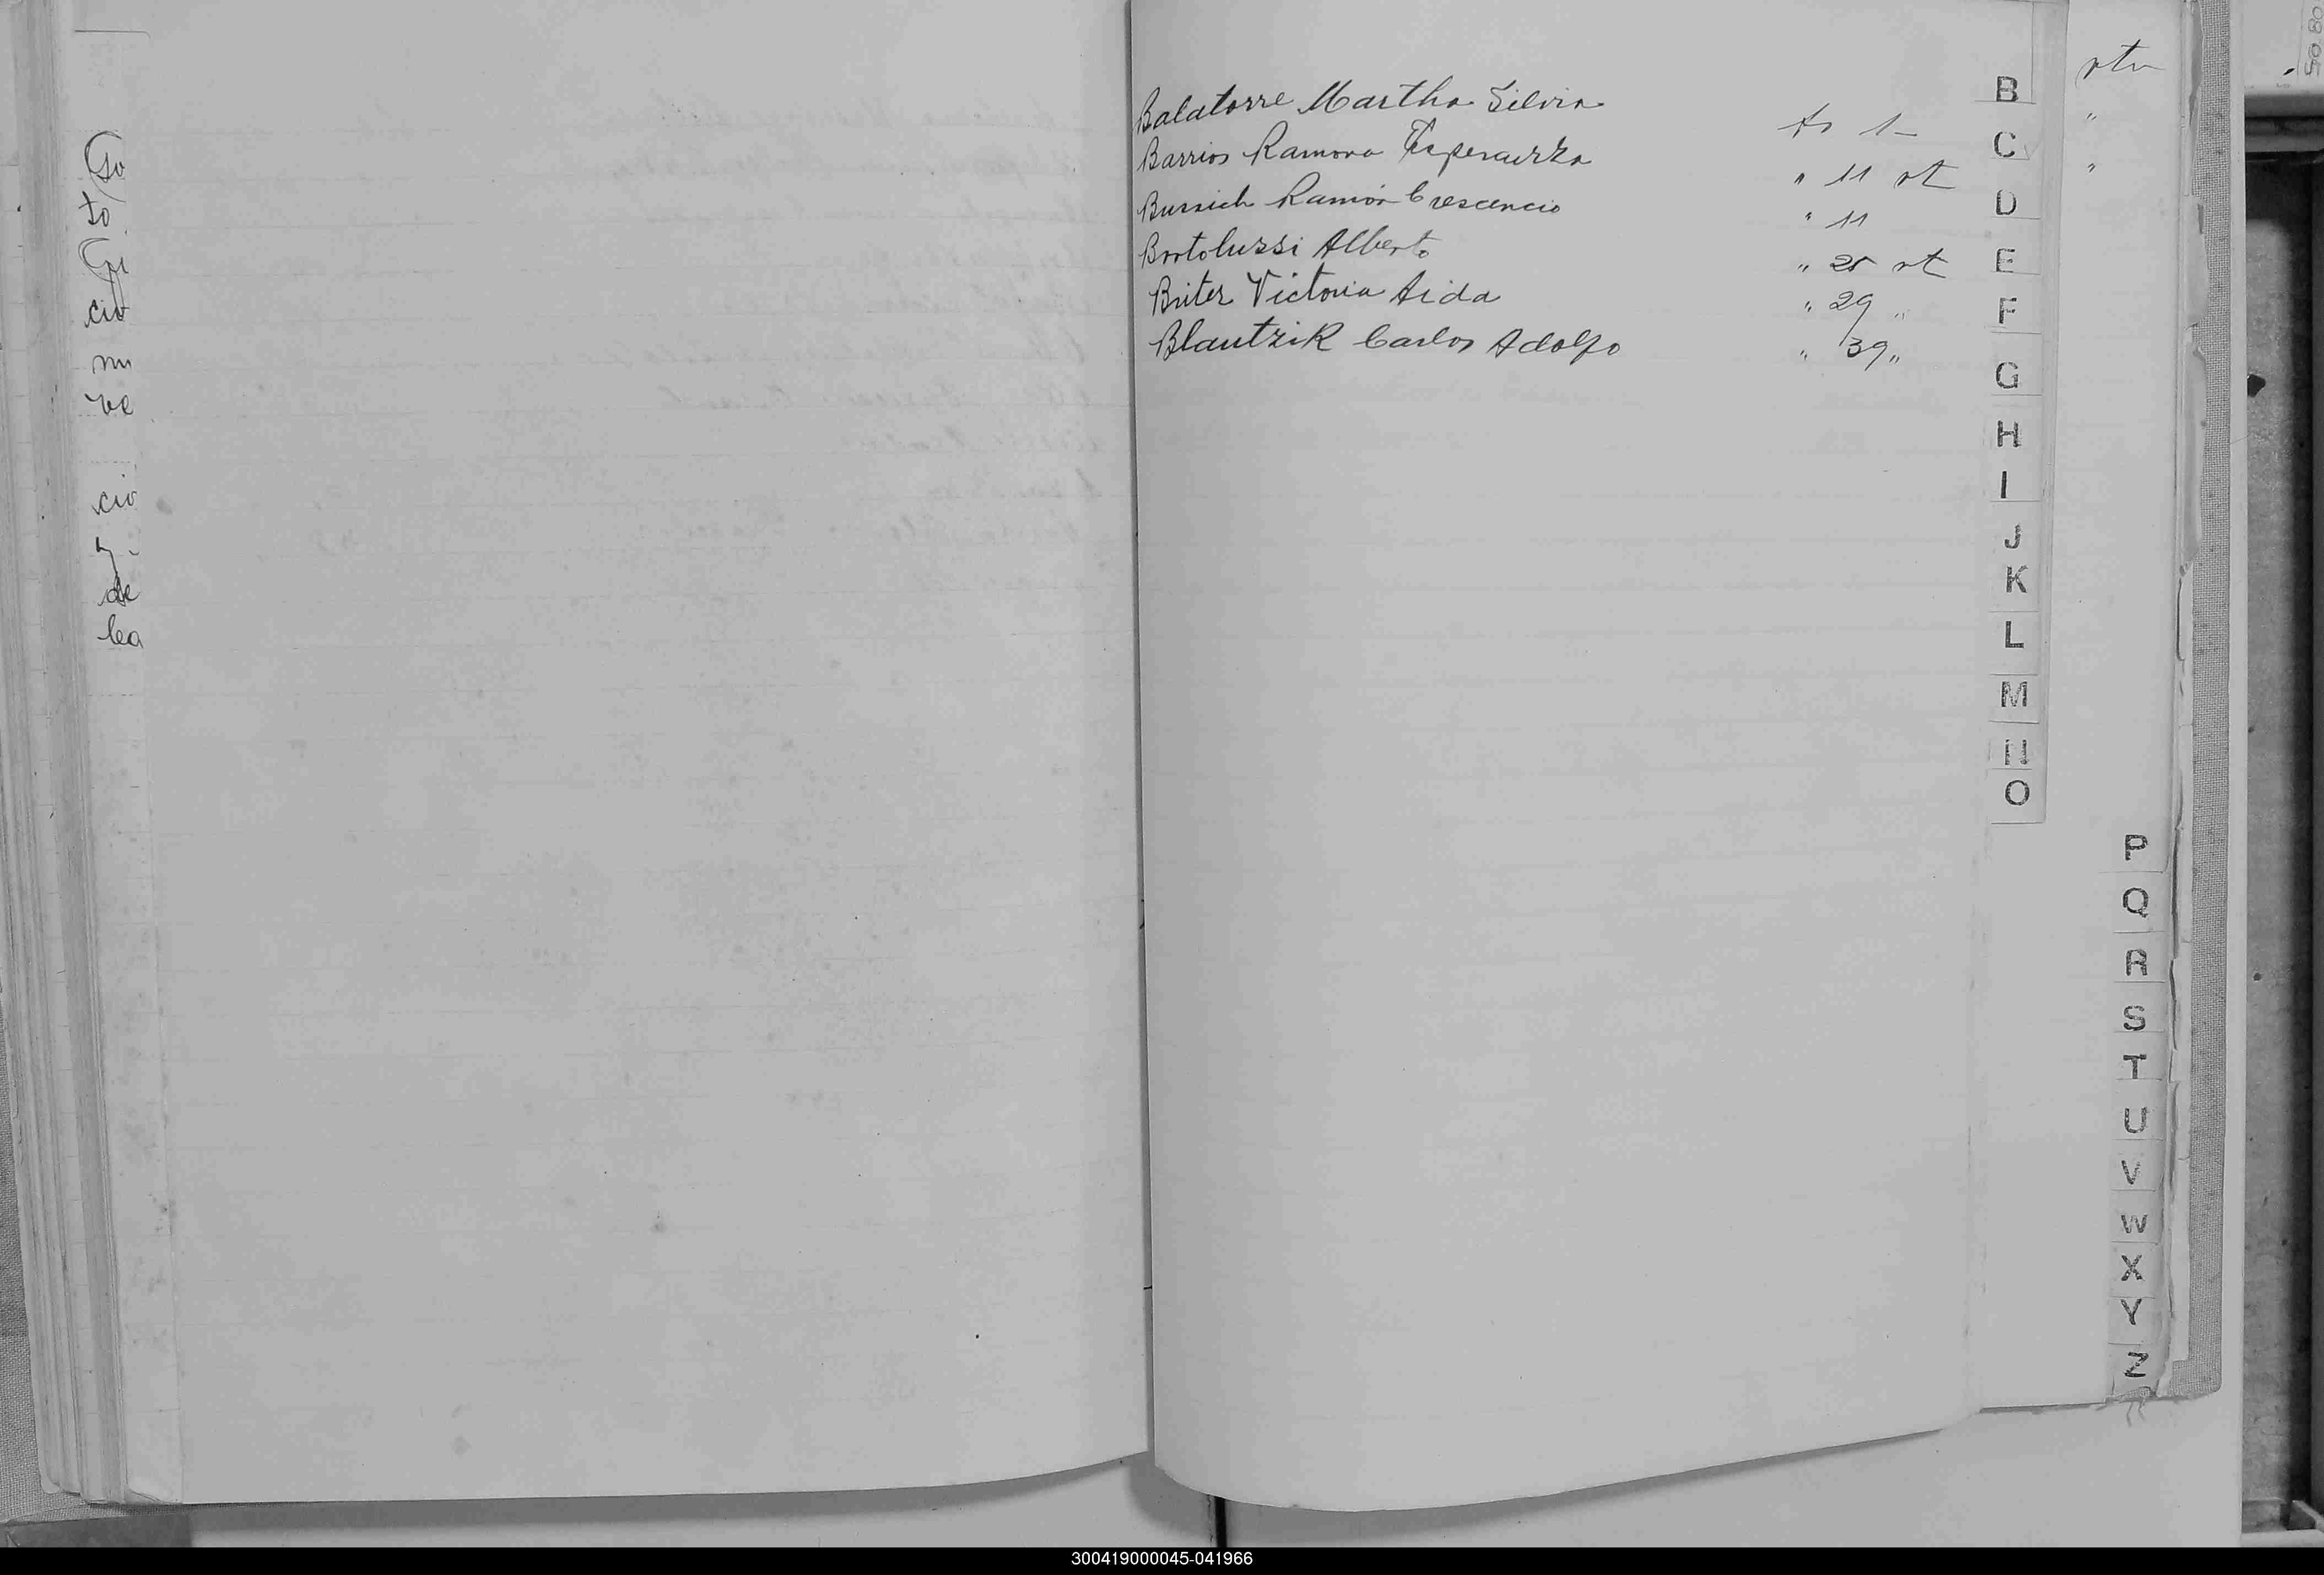 Balatorre Martha Silvia fs 1
Barrios Ramona Esperanza " 11 vt
Bursich Ramón Crescencio " 11
Bortolussi Alberto " 25 vt
Briter Victoria Aida " 29 "
Blautzik Carlos Adolfo " 39 "
B
C
D
E
F
G
H
I
J
K
L
M
N
O
P
Q
R
S
T
U
V
W
X
Y
Z
cio
ve
cio
de
300419000045-041966